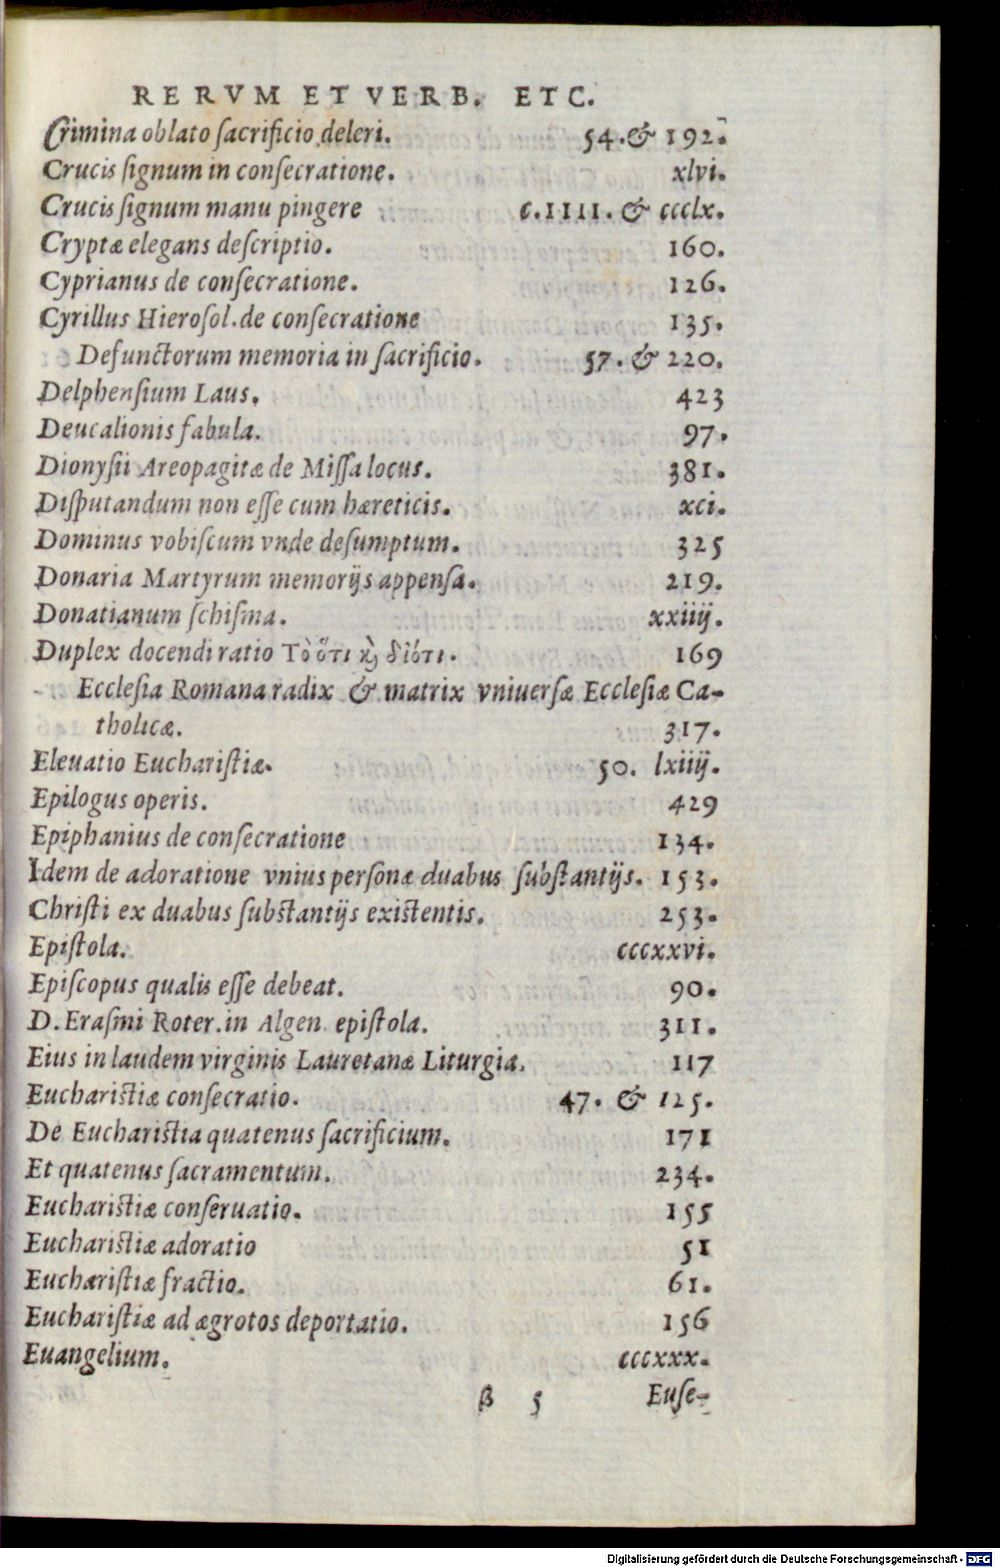 RERVM ET VERB. ETC.
Crimina oblato ſacrificio deleri. 54. & 192.
Crucis ſignum in conſecratione. xlvi.
Crucis ſignum manu pingere c.IIII. & ccclx.
Cryptæ elegans deſcriptio. 160.
Cyprianus de conſecratione. 126.
Cyrillus Hieroſol. de conſecratione 135.
Defunctorum memoria in ſacrificio. 57. & 220.
Delphenſium Laus. 423
Deucalionis fabula. 97.
Dionyſii Areopagitæ de Miſſa locus. 381.
Diſputandum non eſſe cum hæreticis. xci.
Dominus vobiſcum vnde deſumptum. 325
Donaria Martyrum memorijs appenſa. 219.
Donatianum ſchiſma. xxiiij.
Duplex docendi ratio Τὸ ὅτι ϗ̀ διότι. 169
Eccleſia Romana radix & matrix vniuerſæ Eccleſiæ Ca-
tholicæ. 317.
Eleuatio Euchariſtiæ. 50. lxiiij.
Epilogus operis. 429
Epiphanius de conſecratione 134.
Idem de adoratione vnius perſonæ duabus ſubſtantijs. 153.
Chriſti ex duabus ſubſtantijs exiſtentis. 253.
Epiſtola. cccxxvi.
Epiſcopus qualis eſſe debeat. 90.
D. Eraſmi Roter. in Algen. epiſtola. 311.
Eius in laudem virginis Lauretanæ Liturgia. 117
Euchariſtiæ conſecratio. 47. & 125.
De Euchariſtia quatenus ſacrificium. 171
Et quatenus ſacramentum. 234.
Euchariſtiæ conſeruatio. 155
Euchariſtiæ adoratio 51
Euchariſtiæ fractio. 61.
Euchariſtiæ ad ægrotos deportatio. 156
Euangelium. cccxxx.
β 5 Euſe-
Digitalisierung gefördert durch die Deutsche Forschungsgemeinschaft - DFG